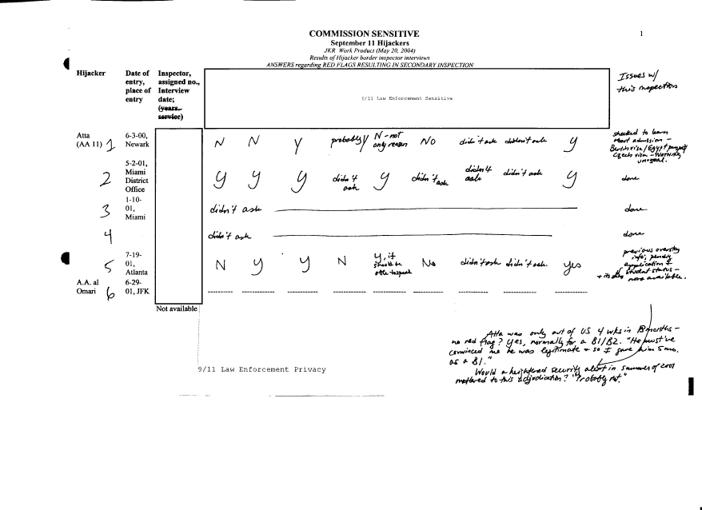 COMMISSION SENSITIVE
1
September 11 Hijackers
JKR Work Product (May 20, 2004)
Results of Hijacker border inspector interviews
ANSWERS regarding RED FLAGS RESULTING IN SECONDARY INSPECTION
Hijacker
Date of entry, place of entry
Inspector, assigned no., Interview date; (years service)
9/11 Law Enforcement Sensitive
Issues w/
this inspection
Atta (AA 11) 1
6-3-00, Newark
N N Y probably N - not only reason No didn't ask didn't ask y
shocked to learn
about admission -
2
5-2-01, Miami District Office
y y y didn't ask y didn't ask didn't ask didn't ask y
done
3
1-10-01, Miami
didn't ask
done
4
didn't ask
done
5
7-19-01, Atlanta
N y y N y, it should be No didn't ask didn't ask yes
previous overstay
info; pending
application &
student status -
more available.
A.A. al Omari 6
6-29-01, JFK
Not available
Atta was only out of US 4 wks in
no red flag? Yes, normally for a B1/B2. "He must've
convinced me he was legitimate & so I gave him
as a B1."
Would a heightened security alert in summer of 2001
mattered to this adjudication? "Probably not."
9/11 Law Enforcement Privacy